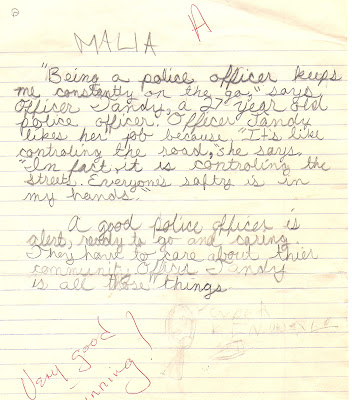 MALIA
A
"Being a police officer keeps
me constantly on the go," says
Officer Tandy, a 27 year old
police officer. Officer Tandy
likes her job because, "It's like
controling the road," she says.
"In fact, it is controling the
streets. Everyone's safty is in
my hands."
A good police officer is
alert, ready to go and caring.
They have to care about thier
community. Officer Tandy
is all those things
Very good